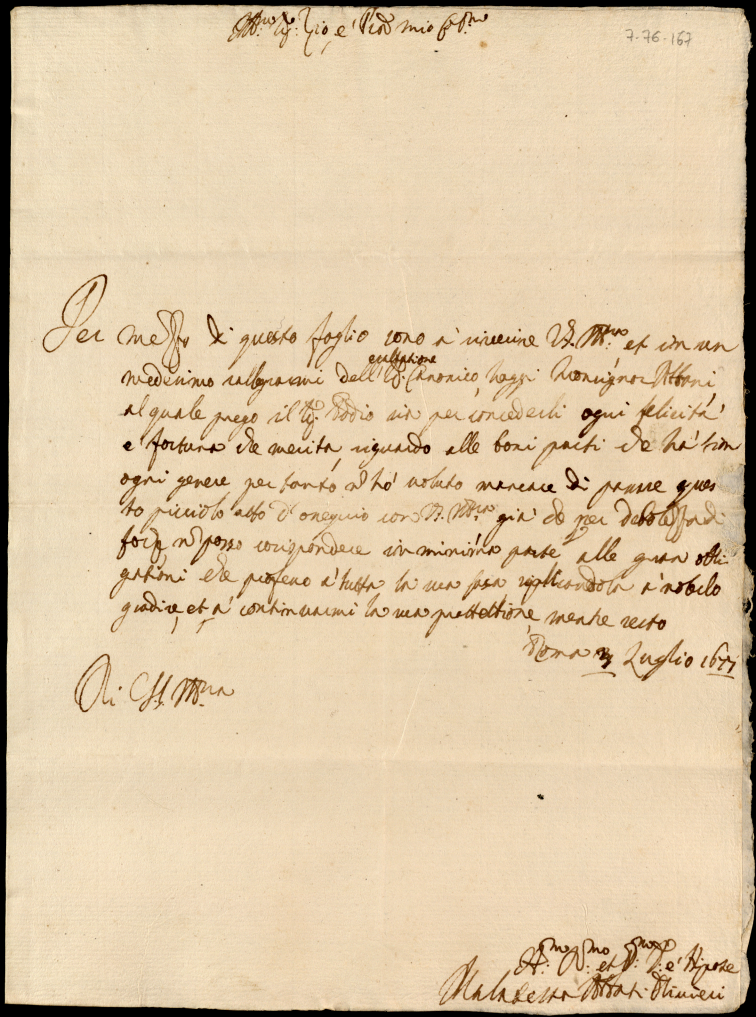 Ill:mo Sig: Zio, e Pron mio Col:mo
7-76-167
Per mezzo di questo foglio sono à riverire V.S. Ill:ma et in un
medesimo rallegrarmi dell'esaltatione Sig: Canonico, hoggi Monsignor Abbati
al quale prego il Sig: Iddio sia per concederli ogni felicità
e fortuna che merita, riguardo alle boni parti che hà in
ogni genere per tanto nõ hò voluto mancare di passare ques
to picciolo atto d'ossequio con V.S. Ill:ma già che per debolezza di
forze nõ posso corrispondere in minima parte alle gran obli
gationi che professo à tutta la sua Casa supplicandola à nobilo
gradire, et à continuarmi la sua protettione mentre resto
Roma 3 Luglio 1677
Di V.S. Ill:ma
Aff:mo et Nipote
Malatesta Abbati Olivieri